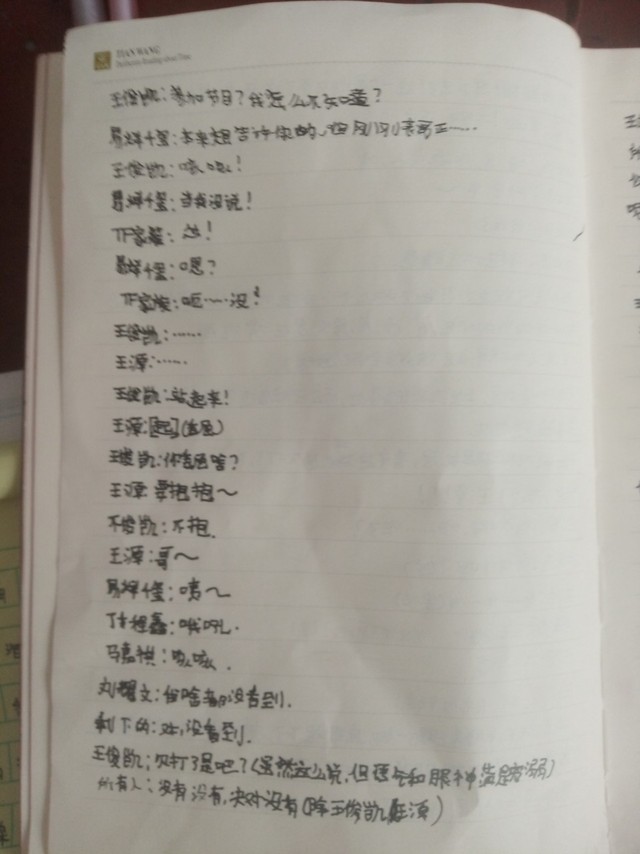 TIAN WANG
王俊凯:参加节目?我怎么不知道?
易烊千玺:本来想告诉你的,但刚刚
王俊凯:咳咳!
易烊千玺:当我没说!
TF家族:怂!
易烊千玺:嗯?
TF家族:呃……没!
王俊凯:……
王源:……
王俊凯:站起来!
王源:[起](委屈)
王俊凯:你委屈啥?
王源:要抱抱~
王俊凯:不抱.
王源:哥~
易烊千玺:咦~
丁程鑫:哦吼.
马嘉祺:咳咳.
刘耀文:俺啥都没看到.
剩下的:对,没看到.
王俊凯:欠打了是吧?(虽然这么说,但语气和眼神满是宠溺)
所有人:没有没有,决对没有(除王俊凯王源)